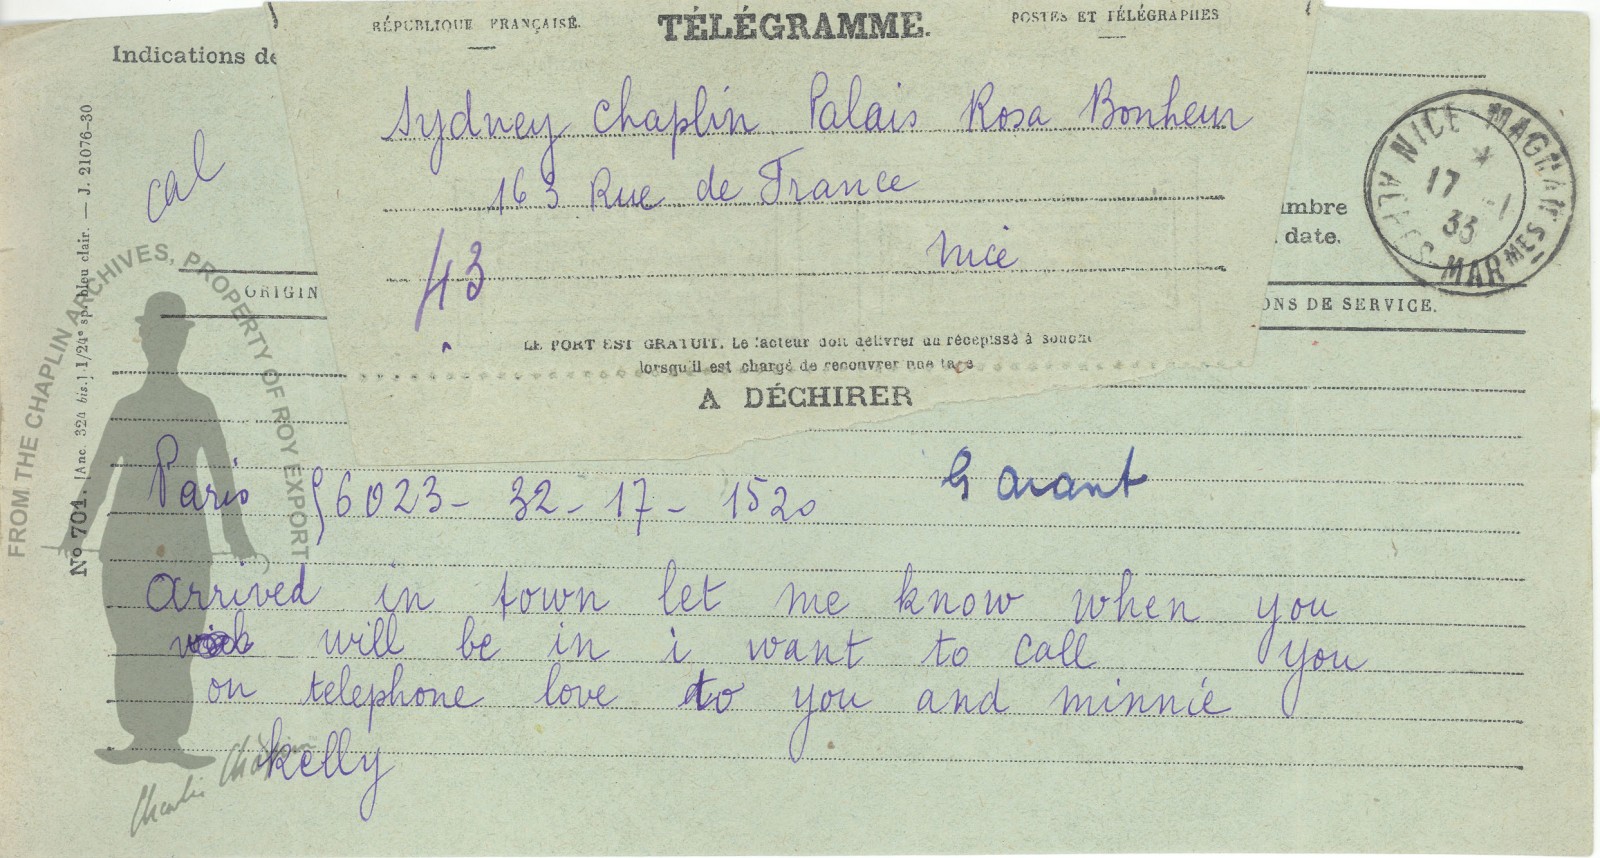 RÉPUBLIQUE FRANÇAISE. TÉLÉGRAMME. POSTES ET TÉLÉGRAPHES
Indications de
Sydney Chaplin Palais Rosa Bonheur
163 Rue de France
Nice
cal
43
imbre
date.
ORIGIN
ONS DE SERVICE.
NICE MAGNAN
17 -1
33
ALPES MARMES
LE PORT EST GRATUIT. Le facteur doit délivrer un récépissé à souche
lorsqu'il est chargé de recouvrer une taxe
A DÉCHIRER
Paris 56023 - 32 - 17 - 1520
arrived in town let me know when you
will be in i want to call you
on telephone love to you and minnie
kelly
No 701. (Anc. 324 bis.) 1/24e sp. bleu clair. — J. 21076-30
FROM THE CHAPLIN ARCHIVES, PROPERTY OF ROY EXPORT
Charlie Chaplin